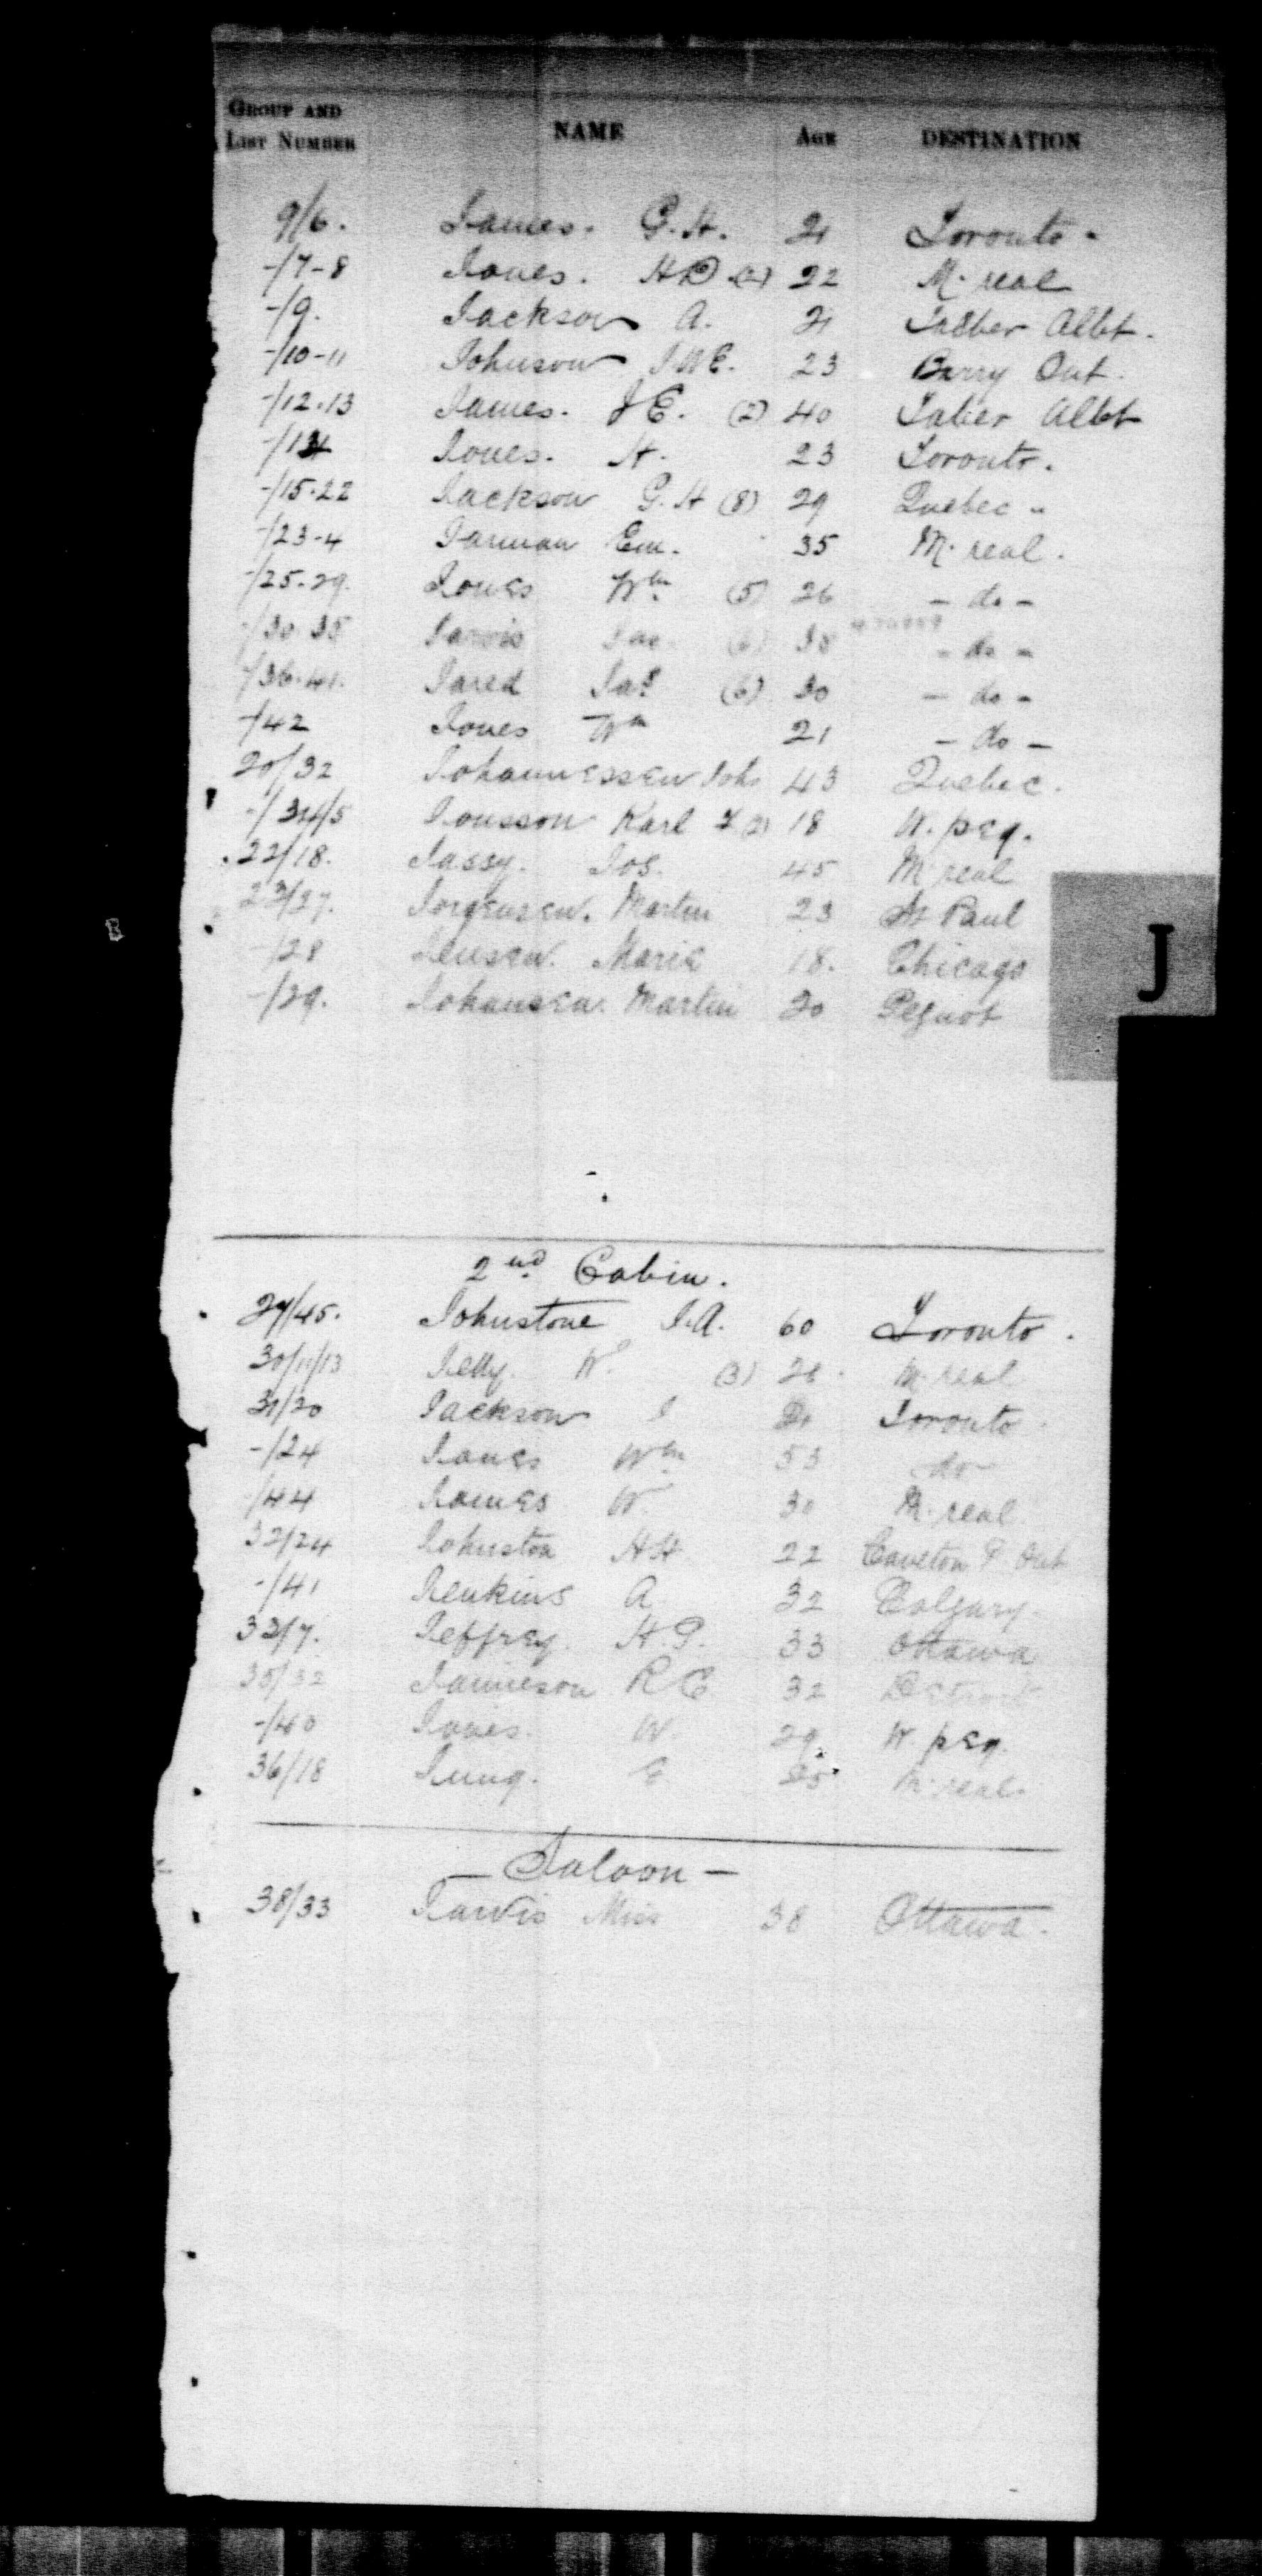 GROUP AND LIST NUMBER NAME AGE DESTINATION
9/6. James. G.H. 21 Toronto.
-/7-8 Jones. H (2) 22 M.real
-/9. Jackson A. 21 Taber Albt.
-/10-11 Johnson J.W.E. 23 Barry Ont.
-/12.13 James. J E. (2) 40 Taber Albt
-/14 Jones. H. 23 Toronto.
-/15.22 Jackson G.H (8) 29 Quebec "
-/23-4 Jarman Em. 35 M.real.
-/25.29. Jones Wm (5) 26 - do -
-/30.35 Jarvis Jas (6) 38 - do -
-/36.41. Jared Jas (6) 30 - do -
-/42 Jones Wm 21 - do -
20/32 Johannessen Joh 43 Quebec.
-/34/5 Jonsson Karl (2) 18 W.peg.
22/18. Jassy. Jos. 45 M real
23/27. Jorgensen. Martin 23 St Paul
-/28 Jensen. Marie 18. Chicago
-/29. Johansen. Martin 20 Pequot
J
2nd Cabin.
29/45. Johnstone J.A. 60 Toronto.
30/11/13 Jelly. W. (3) 26. M.real
31/20 Jackson J 21 Toronto
-/24 Jones Wm 53 do
-/44 James W. 30 M.real.
32/24 Johnston HH 22 Ont
-/41 Jenkins A 32 Calgary.
33/7. Jeffrey. H.P. 33 Ottawa
35/32 Jamieson R C 32 Detroit
-/40 Jones. W. 29 W.peg.
36/18 Jung. E 25 M.real.
- Saloon -
38/33 Jarvis Miss 38 Ottawa.